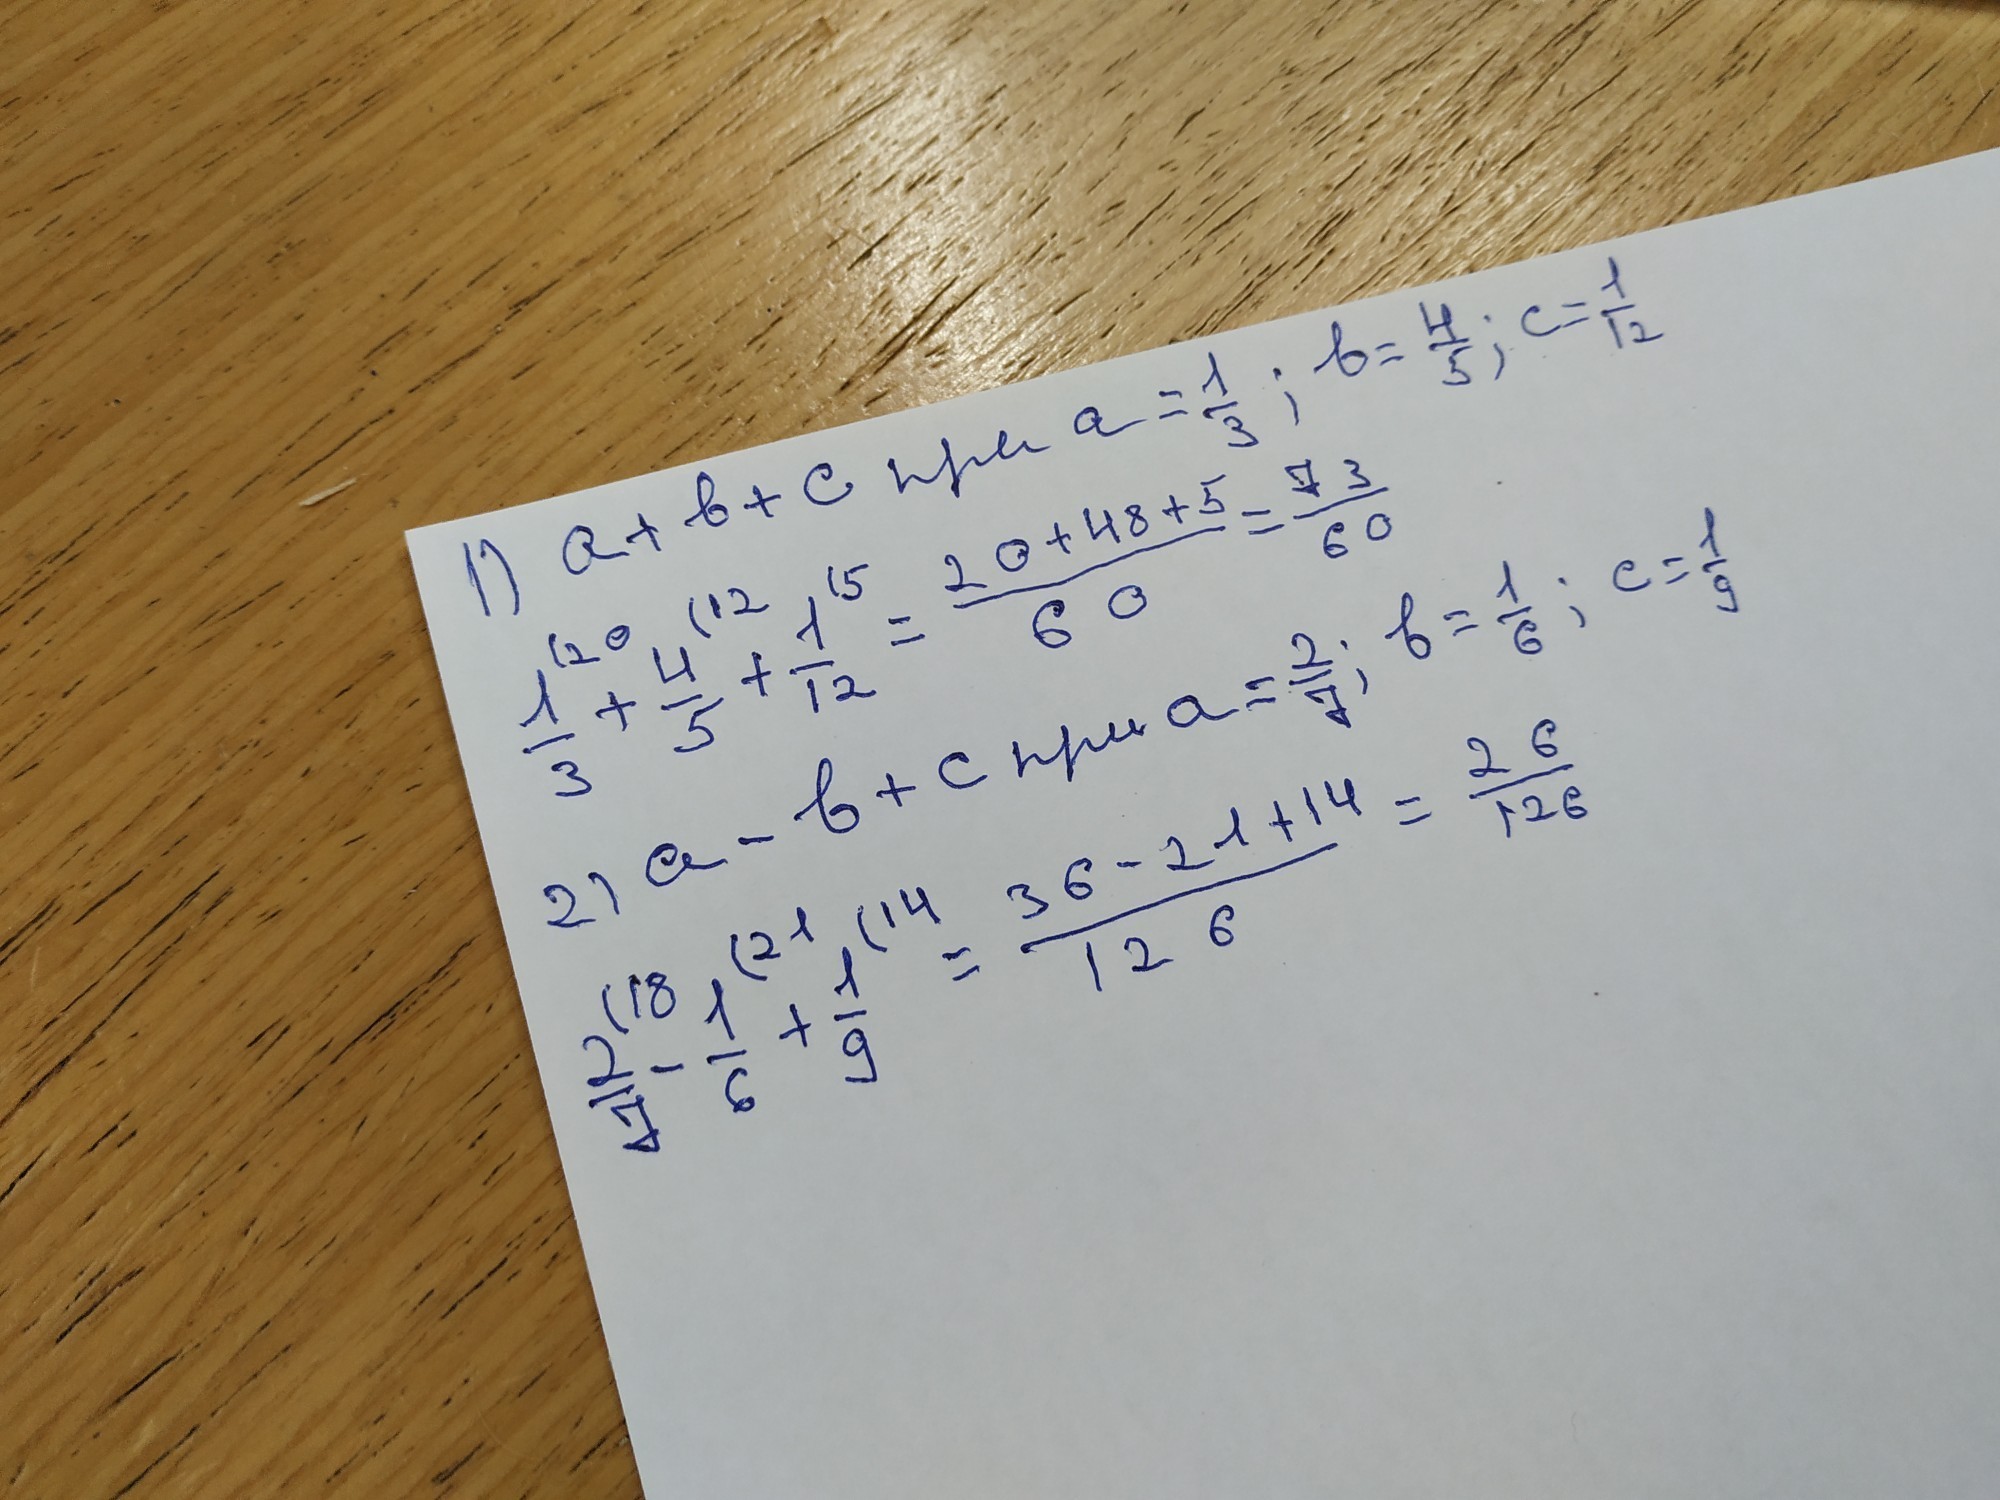 1) a + b + c при a = 1/3; b = 4/5; c = 1/12
1/3 (20 + 4/5 (12 + 1/12 (5 = 20+48+5/60 = 73/60
2) a - b + c при a = 2/7; b = 1/6; c = 1/9
2/7 (18 - 1/6 (21 + 1/9 (14 = 36-21+14/126 = 26/126